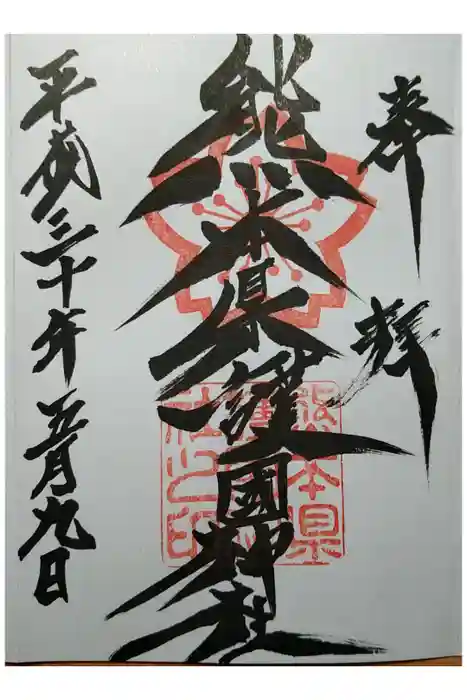 奉拝
熊本県護國神社
平成三十年五月九日
熊本県
護國神
社之印